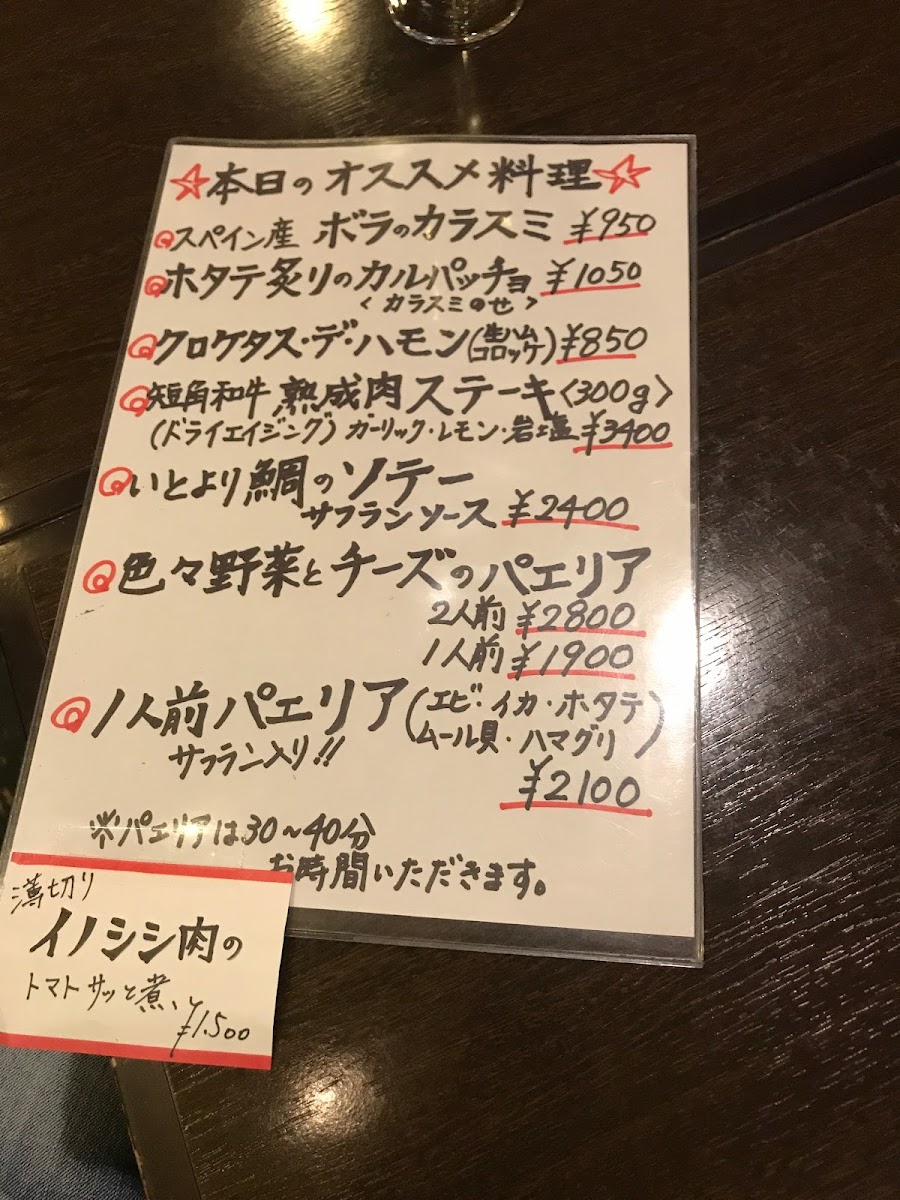 ☆本日のオススメ料理☆
スペイン産 ボラのカラスミ ¥950
ホタテ炙りのカルパッチョ ¥1050
<カラスミのせ>
クロケタス・デ・ハモン(生ハムコロッケ)¥850
短角和牛 熟成肉ステーキ<300g>
(ドライエイジング) ガーリック・レモン・岩塩 ¥3400
いとより鯛のソテー
サフランソース ¥2400
色々野菜とチーズのパエリア
2人前 ¥2800
1人前 ¥1900
1人前パエリア(エビ・イカ・ホタテ
ムール貝・ハマグリ)
サフラン入り!!
¥2100
※パエリアは30~40分
お時間いただきます。
薄切り
イノシシ肉の
トマトサッと煮
¥1.500